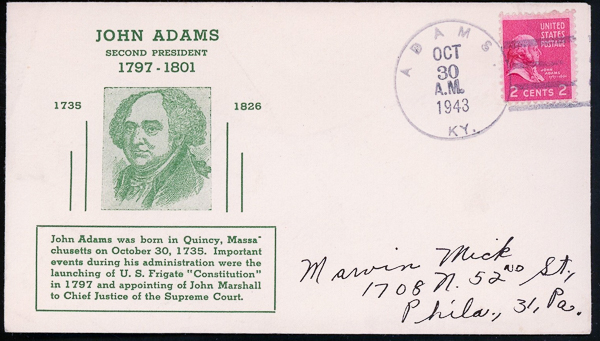 JOHN ADAMS
SECOND PRESIDENT
1797-1801
1735
1826
John Adams was born in Quincy, Massa-
chusetts on October 30, 1735. Important
events during his administration were the
launching of U. S. Frigate "Constitution"
in 1797 and appointing of John Marshall
to Chief Justice of the Supreme Court.
ADAMS
OCT
30
A.M.
1943
KY.
UNITED
STATES
POSTAGE
JOHN
ADAMS
2 CENTS 2
Marvin Mick
1708 N. 52ND St.,
Phila., 31, Pa.